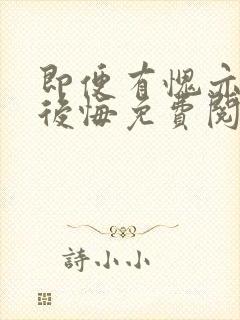 即便有愧亦
後悔免費閱
詩小小